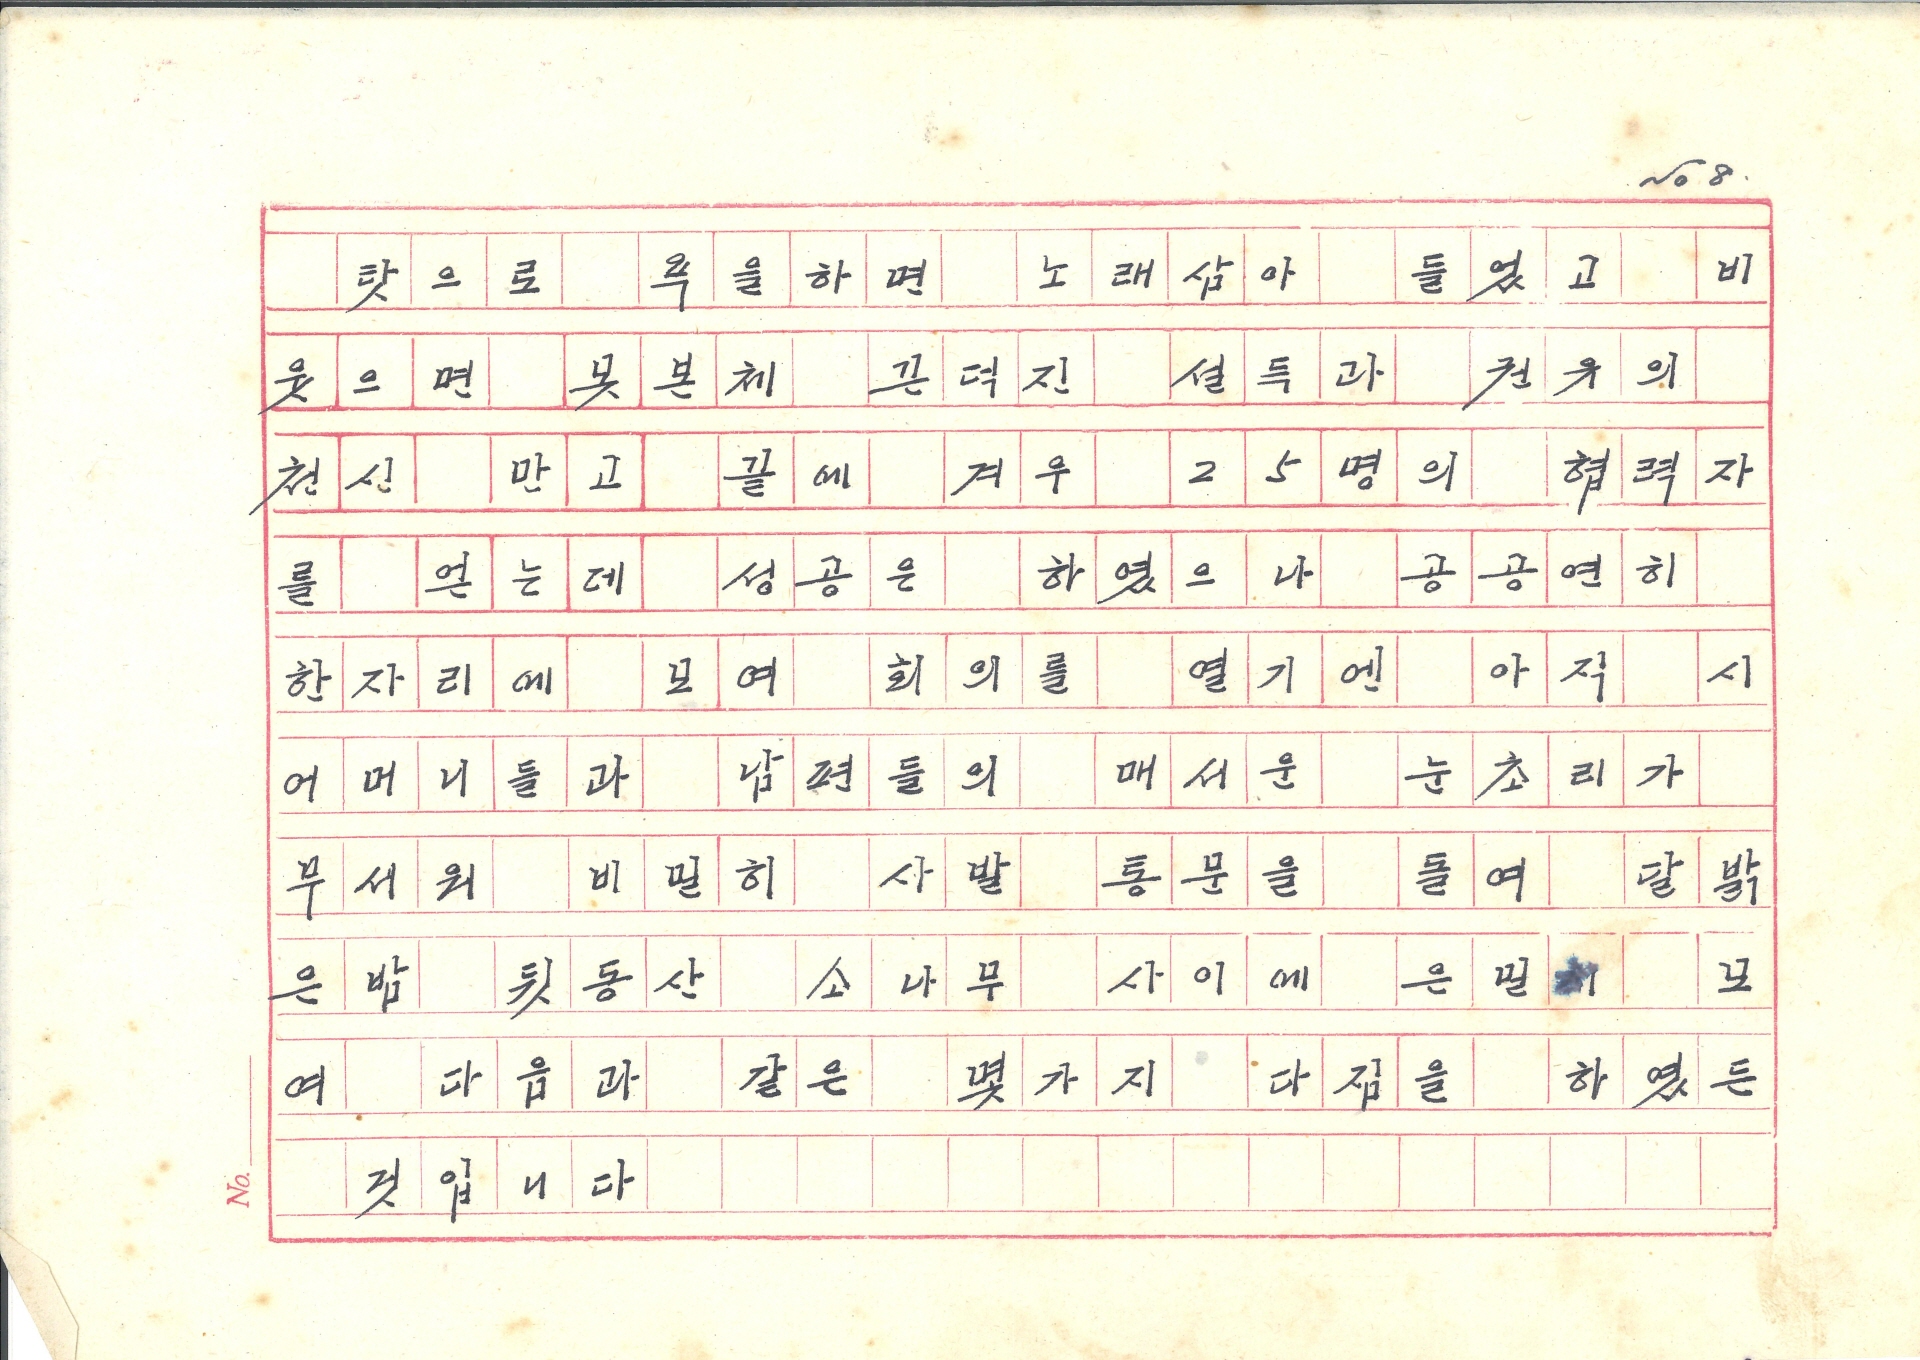 No 8.
탓으로 욕을하면 노래삼아 들었고 비
웃으면 못본체 끈덕진 설득과 권유의
천신 만고 끝에 겨우 25명의 협력자
를 얻는데 성공은 하였으나 공공연히
한자리에 모여 회의를 열기엔 아직 시
어머니들과 남편들의 매서운 눈초리가
무서워 비밀히 사발 통문을 돌여 달밝
은밤 뒷동산 소나무 사이에 은밀히 모
여 다음과 같은 몇가지 다짐을 하였든
것입니다
No.